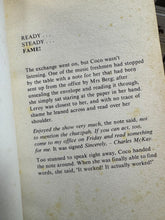 READY . . .
STEADY . . .
FAME!
The exchange went on, but Coco wasn't
listening. One of the music freshmen had stopped
by the table with a note for her that had been
sent up from the office by Mrs Berg; after
unsealing the envelope and reading it through,
she simply sat staring at the paper in her hand.
Leroy was closest to her, and with no trace of
shame he leaned around and read over her
shoulder.
Enjoyed the show very much, the note said, not
to mention the chutzpah. If you can act, too,
come to my office on Friday and read something
for me. It was signed Sincerely, – Charles McKay.
Too stunned to speak right away, Coco handed
the note around. When she was finally able to find
words, she said, "It worked! It actually worked!"